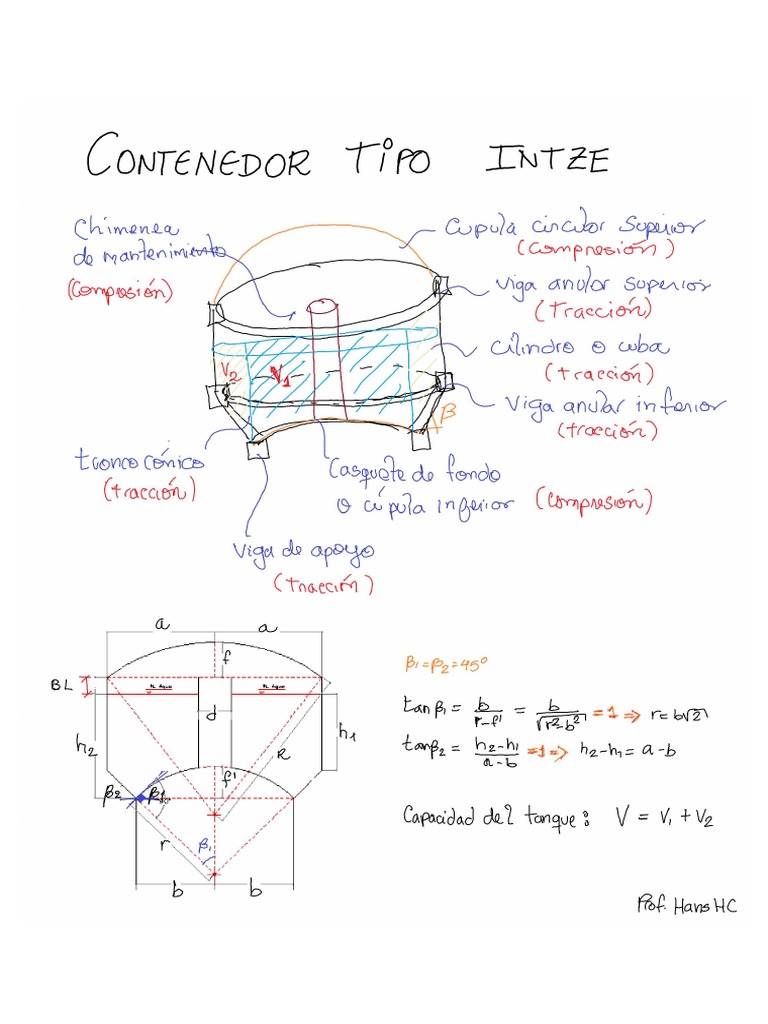 CONTENEDOR TIPO INTZE
Chimenea
de mantenimiento
(Compresión)
Cupula circular superior
(Compresión)
Viga anular superior
(Tracción)
Cilindro o cuba
(tracción)
Viga anular inferior
(tracción)
V2
V1
β
tronco cónico
(tracción)
Casquete de fondo
o cúpula inferior (Compresión)
Viga de apoyo
(tracción)
a a
f
BL
d
h2
h1
R
f'
β2 β1
r
β1
b b
β1=β2=45º
tan β1 = b/(r-f') = b/√(r²-b²) =1 => r=b√2
tanβ2 = (h2-h1)/(a-b) =1=> h2-h1=a-b
Capacidad del tanque: V = V1 + V2
Prof. Hans HC